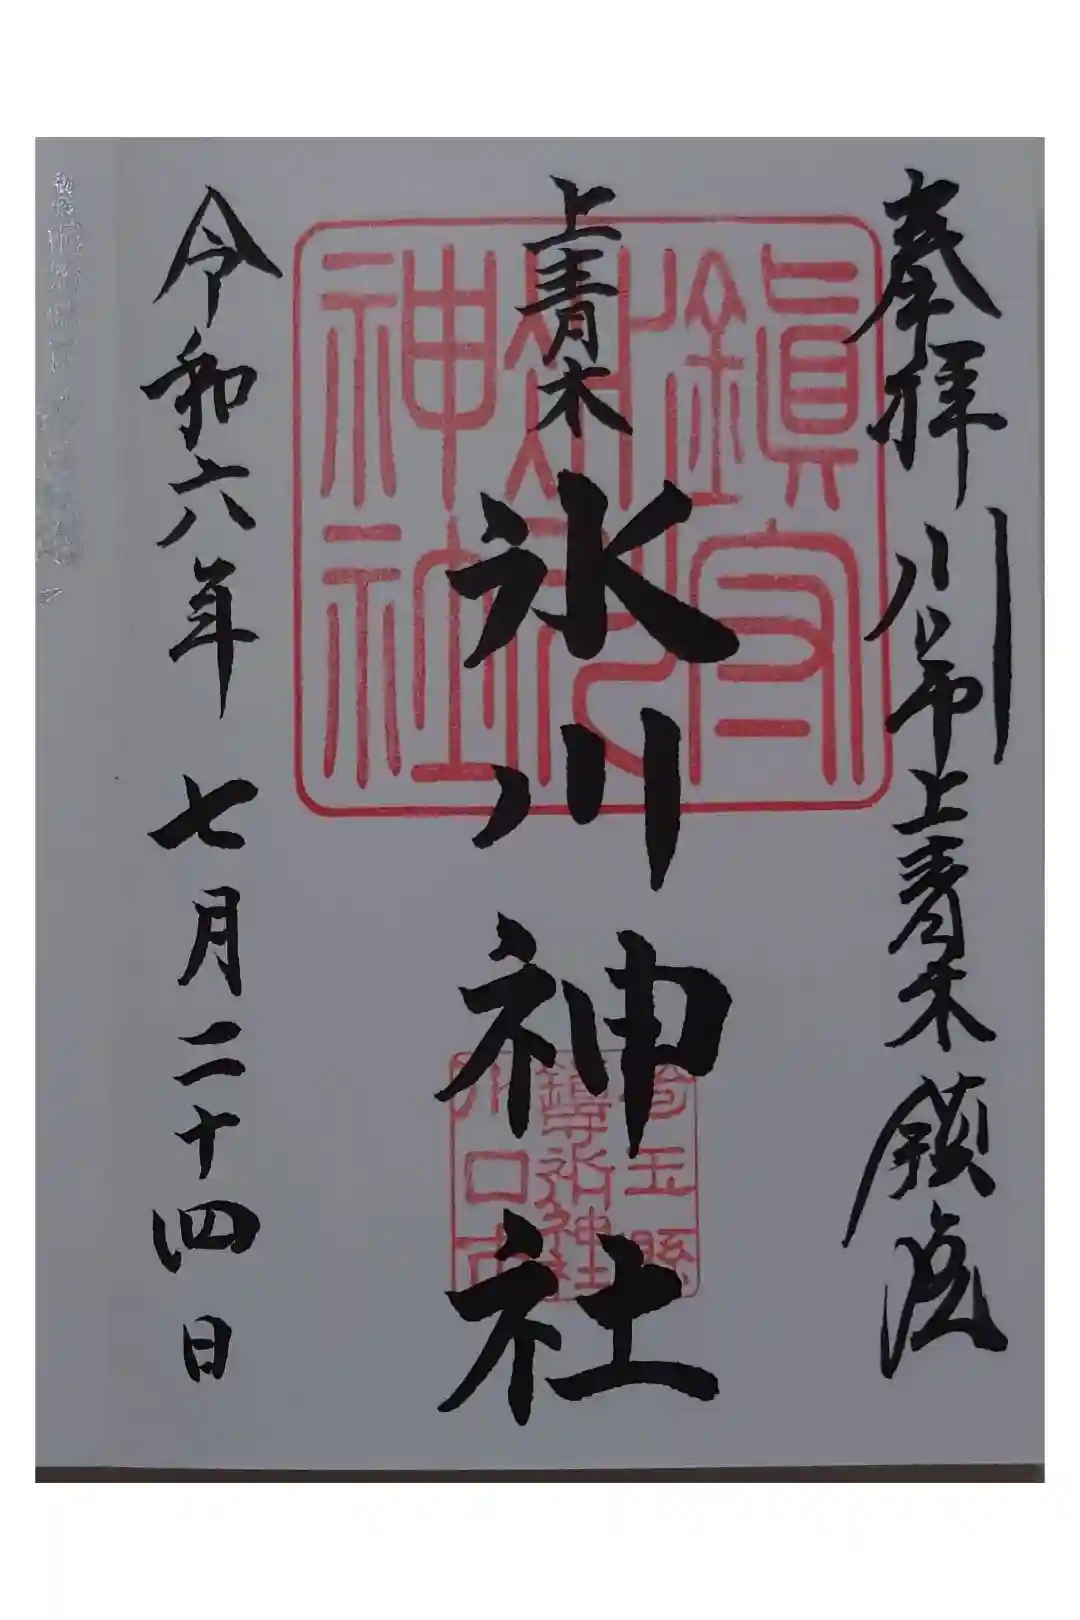 奉拝 川口市上青木 鎮座
上青木
氷川神社
令和六年 七月二十四日
鎮守
氷川
神社
埼玉縣
鎮守氷川神社
川口市